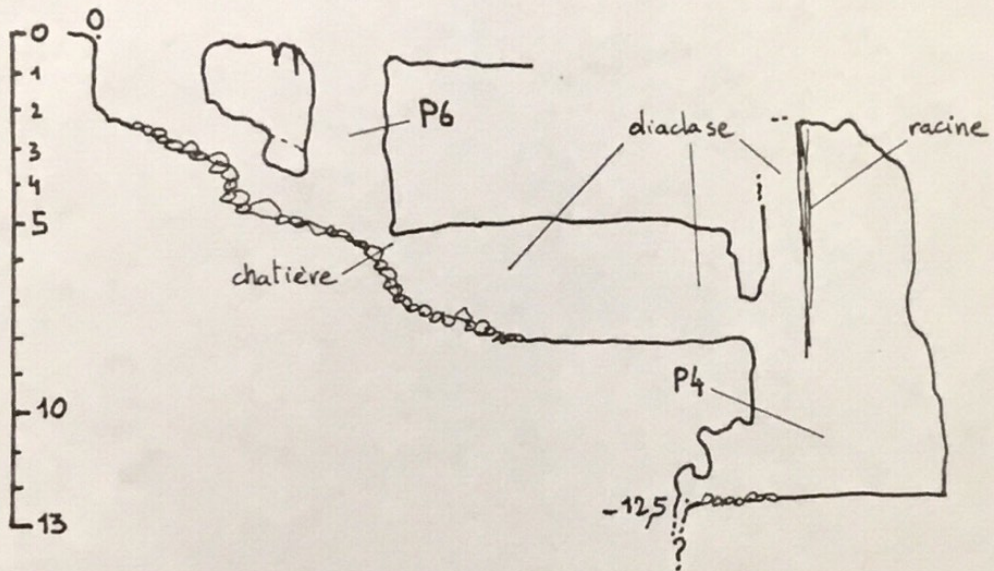 0
0
1
2
3
4
5
10
13
P6
diaclase
racine
chatière
P4
-12,5
?